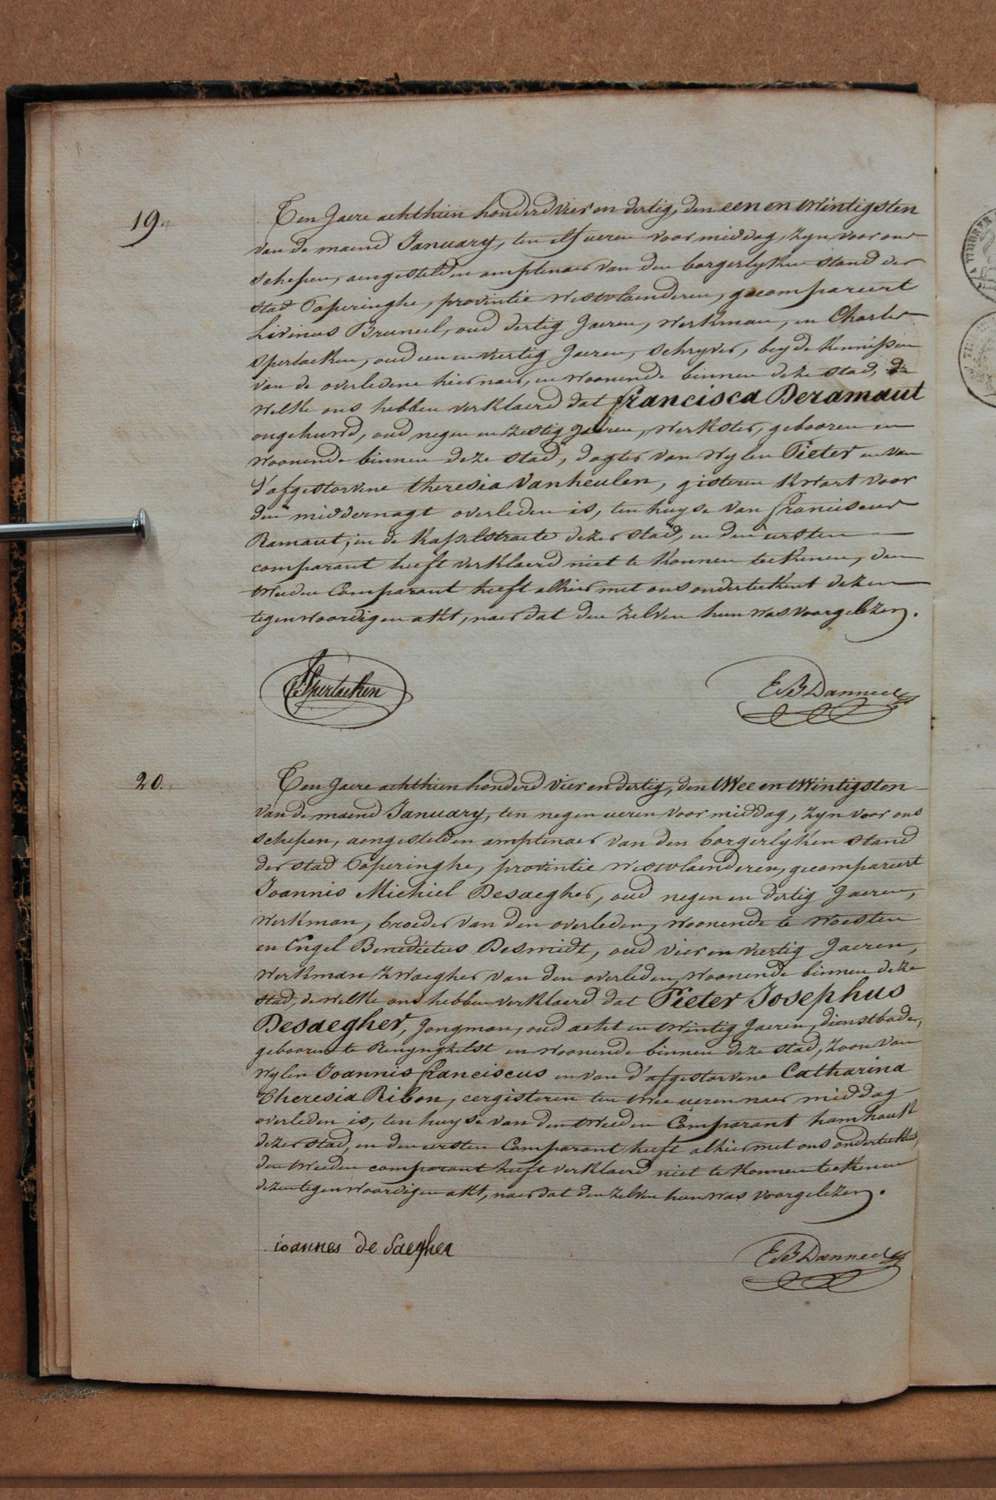 19.
Ten Jaere achthien honderd vier en dertig, den een en twintigsten
van de maend January, ten elf ueren voormiddag, zyn voor ons
schepen, aengestelden amptenaer van den borgerlyken stand der
stad Poperinghe, provintie westvlaenderen, gecompareert
Livinus Bruneel, oud dertig Jaeren, werkman, en Charles
Sperlaeken, oud een en viertig Jaeren, schryver, beyde kennissen
van de overledene hiernaer, en woonende binnen deze stad, de
welke ons hebben verklaerd dat francisca Deramaut
ongehuwd, oud negen en zestig Jaeren, werkster, gebooren en
woonende binnen deze stad, dogter van wylen Pieter en van
d'afgestorvene theresia Vanheulen, gisteren kwart voor
den middernagt overleden is, ten huyse van franciscus
Ramaut, in de Kasselstraete dezer stad, en den eersten
comparant heeft verklaerd niet te konnen teekenen, den
tweeden Comparant heeft alhier met ons onderteekent dezen
tegenwoordigen akt, naer dat den zelven hun was voorgelezen.
Sperlaeken
E B Danneel
20.
Ten Jaere achthien honderd vier en dertig, den twee en twintigsten
van de maend January, ten negen ueren voormiddag, zyn voor ons
schepen, aengestelden amptenaer van den borgerlyken stand
der stad Poperinghe, provintie westvlaenderen, gecompareert
Joannis Michiel Desaegher, oud negen en dertig Jaeren,
werkman, broeder van den overleden, woonende te woesten
en Engel Benedictus Desmidt, oud vier en viertig Jaeren,
werkman zwaegher van den overleden, woonende binnen deze
stad, de welke ons hebben verklaerd dat Pieter Josephus
Desaegher, Jongman, oud acht en twintig Jaeren, dienstbode,
gebooren te Renynghelst en woonende binnen deze stad, zoon van
wylen Joannis franciscus en van d'afgestorvene Catharina
Theresia Ribon, eergisteren ten twee ueren naer middag
overleden is, ten huyse van den tweeden Comparant hamhoek
dezer stad, en den eersten Comparant heeft alhier met ons onderteekent,
den tweeden comparant heeft verklaerd niet te konnen teekenen
dezen tegenwoordigen akt, naer dat den zelven hun was voorgelezen.
ioannes de Saegher
E B Danneel